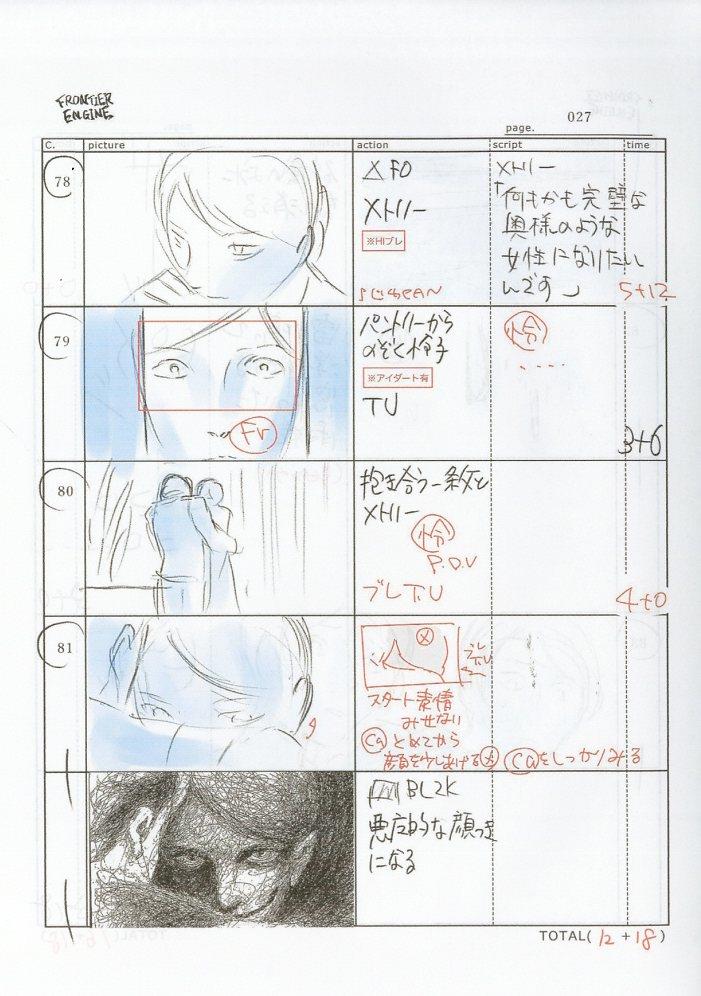 FRONTIER
ENGINE
page. 027
C. picture action script time
78
FO
メトリー
※HIブレ
メトリー
「何もかも完璧な
奥様のような
女性になりたい
んです」
5+12
79
パントリーから
のぞく怜子
※アイダート有
TU
怜
....
Fr
3+6
80
抱き合う一条と
メトリー
怜
P.O.V
ブレT.U
4+0
81
スタート表情
みせない
Caとめてから
顔を少しあげる
Caをしっかりみる
BL2K
悪魔的な顔つき
になる
TOTAL( 12 + 18 )